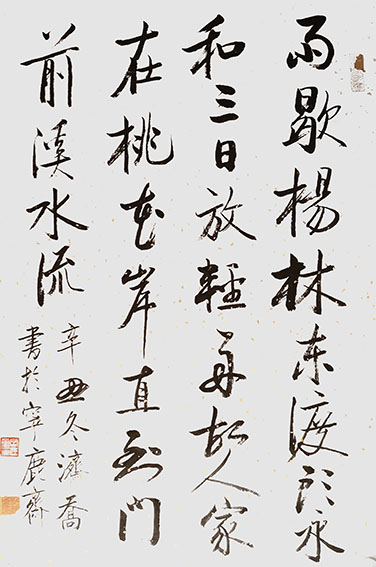 雨歇楊林東渡頭永
和三日放輕舟故人家
在桃花岸直到門
前溪水流
辛丑冬濟喬
書於宰鹿齋